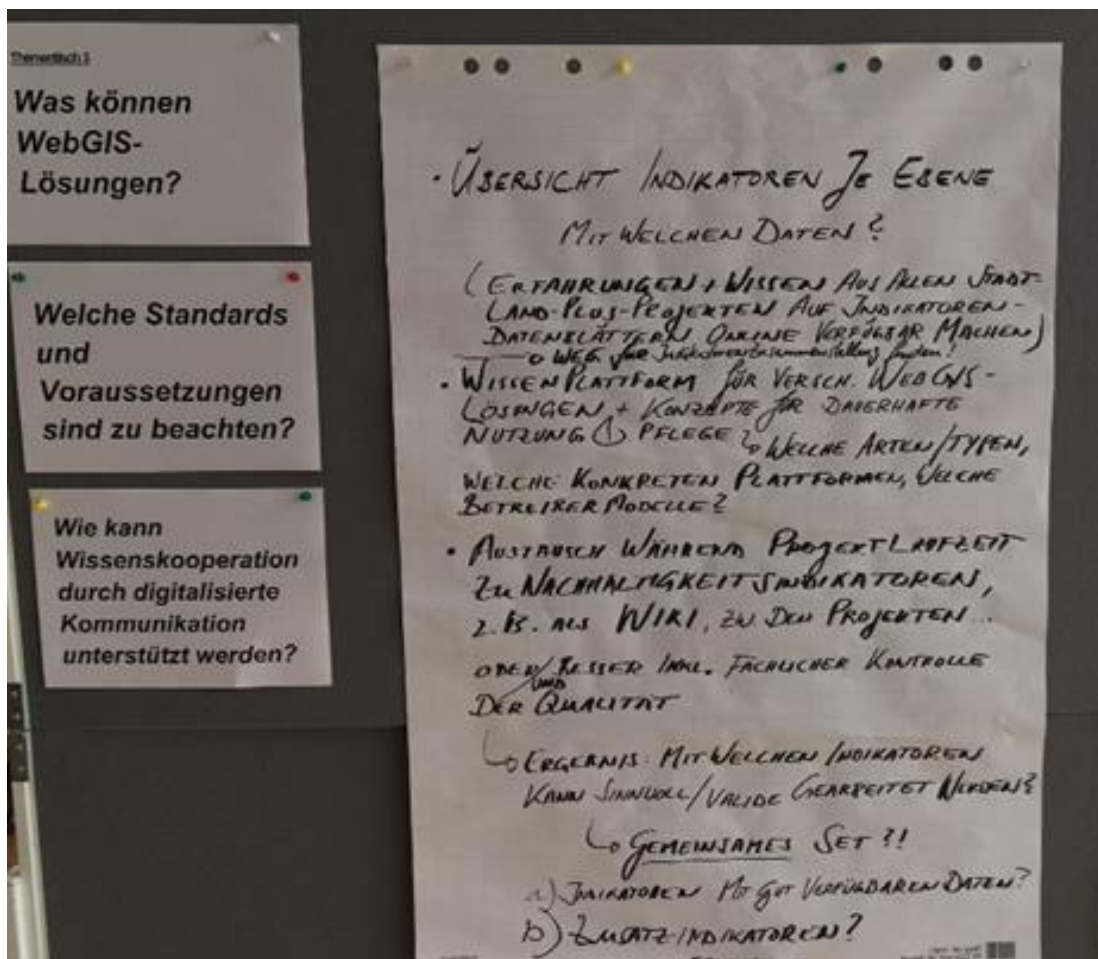 Thementisch 3
Was können
WebGIS-
Lösungen?
Welche Standards
und
Voraussetzungen
sind zu beachten?
Wie kann
Wissenskooperation
durch digitalisierte
Kommunikation
unterstützt werden?
· ÜBERSICHT INDIKATOREN JE EBENE
MIT WELCHEN DATEN?
(ERFAHRUNGEN + WISSEN AUS ALLEN STADT-
LAND-PLUS-PROJEKTEN AUF INDIKATOREN-
DATENBLÄTTERN ONLINE VERFÜGBAR MACHEN)
WEG für Indikatorenzusammenstellung finden!
· WISSENPLATTFORM FÜR VERSCH. WEBGIS-
LÖSUNGEN + KONZEPTE FÜR DAUERHAFTE
NUTZUNG PFLEGE WELCHE ARTEN/TYPEN,
WELCHE KONKRETEN PLATTFORMEN, WELCHE
BETREIBER MODELLE?
· AUSTAUSCH WÄHREND PROJEKTLAUFZEIT
ZU NACHHALTIGKEITSINDIKATOREN,
z.B. ALS WIKI, ZU DEN PROJEKTEN...
ODER/BESSER INKL. FACHLICHER KONTROLLE
UND
DER QUALITÄT
ERGEBNIS: MIT WELCHEN INDIKATOREN
KANN SINNVOLL/VALIDE GEARBEITET WERDEN?
GEMEINSAMES SET?!
a) INDIKATOREN MIT GUT VERFÜGBAREN DATEN?
b) ZUSATZINDIKATOREN?